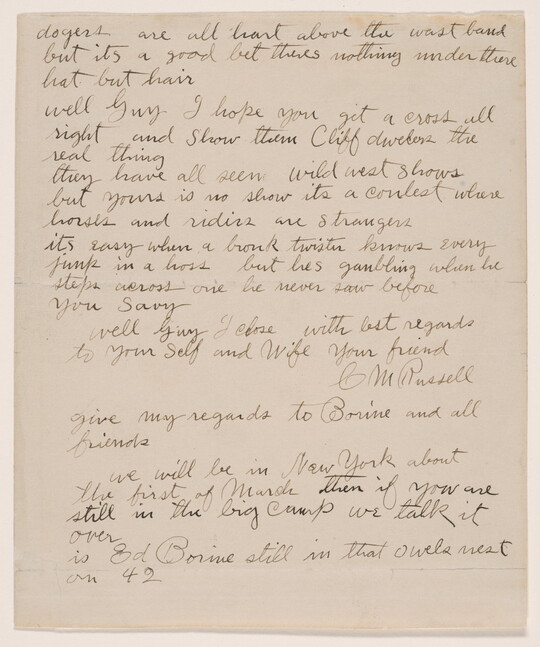 dogers are all hart above the wast band
but its a good bet theres nothing under there
hat but hair
well Guy I hope you get a cross all
right and show them Cliff dwelers the
real thing
they have all seen wild west shows
but yours is no show its a contest where
horses and riders are strangers
its easy when a bronk twister knows every
jump in a hoss but hes gambling when he
steps across one he never saw before
you savy
well Guy I close with best regards
to your self and Wife your friend
C M Russell
give my regards to Borine and all
friends
we will be in New York about
the first of March then if you are
still in the big Camp we talk it
over
is Ed Borine still in that owels nest
on 42